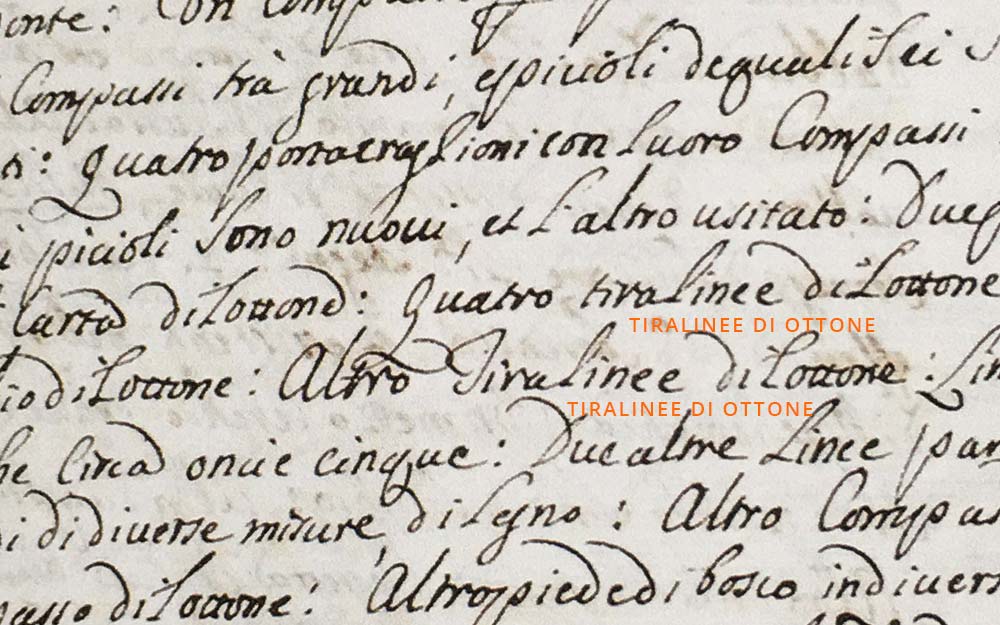 Compassi trà grandi, e picioli dequali Sei
ti: Quatro portacraglioni con luoro Compassi
i picioli Sono nuovi, et L'altro usitato: Due
Carta di Lottone: Quatro tiralinee di Lottone
TIRALINEE DI OTTONE
io di Lottone: Altro Tiralinee di Lottone: Lin
TIRALINEE DI OTTONE
he Circa oncie cinque: Due altre Linee par
i di diverse misure, di Legno: Altro Compas
passo di Lottone: Altro piede di bosco in divers